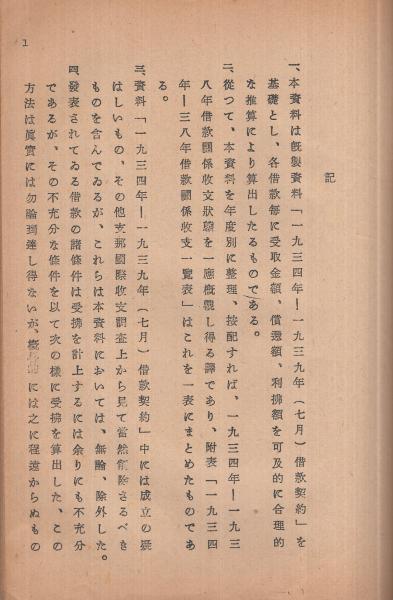 記
一、本資料は既製資料「一九三四年―一九三九年(七月)借款契約」を
基礎とし、各借款毎に受取金額、償還額、利拂額を可及的に合理的
な推算により算出したるものである。
二、從つて、本資料を年度別に整理、按配すれば、一九三四年―一九三
八年借款關係收支狀態を一應概觀し得る譯であり、附表「一九三四
年―三八年借款關係收支一覽表」はこれを一表にまとめたものであ
る。
三、資料「一九三四年―一九三九年(七月)借款契約」中には成立の疑
はしいもの、その他支那國際收支調査上から見て當然削除さるべき
ものを含んでゐるが、これらは本資料においては、無論、除外した。
四、發表されてゐる借款の諸條件は受拂を計上するには余りにも不充分
であるが、その不充分な條件を以て次の樣に受拂を算出した、この
方法は眞實には勿論到達し得ないが、概には之に程遠からぬもの
1